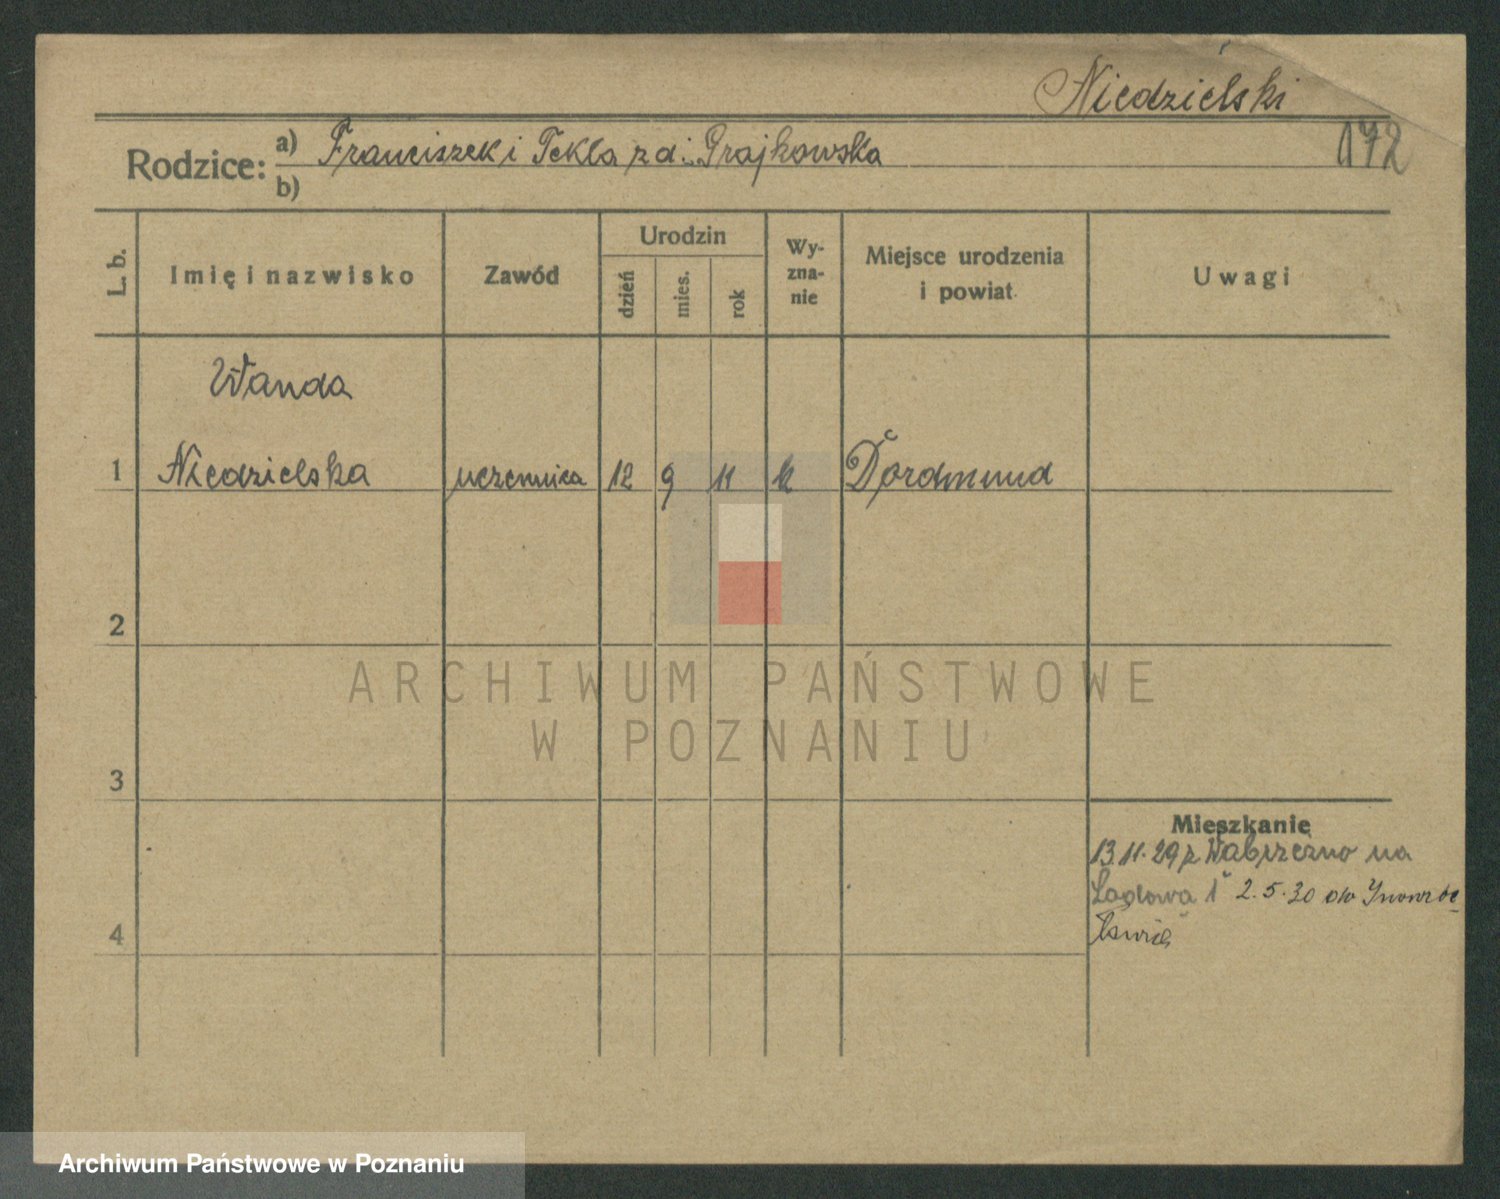 Niedzielski
172
Rodzice: a) Franciszek i Tekla z d. Grajkowska
b)
L. b. Imię i nazwisko Zawód Urodzin dzień mies. rok Wy-zna-nie Miejsce urodzenia i powiat Uwagi
Wanda
1 Niedzielska uczennica 12 9 11 k Dordmund
2
ARCHIWUM PAŃSTWOWE
W POZNANIU
3
Mieszkanie
13.11.29 z Wąbrzeźno na
Ładowa 1 2.5.30 do Inowroc
ławia
4
Archiwum Państwowe w Poznaniu